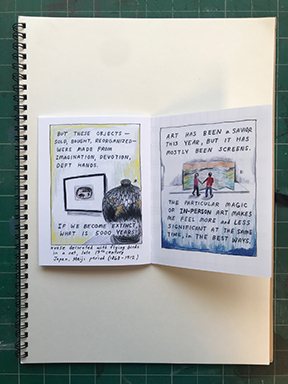 BUT THESE OBJECTS —
SOLD, BOUGHT, REORGANIZED—
WERE MADE FROM
IMAGINATION, DEVOTION,
DEFT HANDS.
IF WE BECOME EXTINCT,
WHAT IS 5000 YEARS?
decorated with flying birds
in a net, late 19th century
Japan, Meiji period (1868-1912)
ART HAS BEEN A SAVIOR
THIS YEAR, BUT IT HAS
MOSTLY BEEN SCREENS.
THE PARTICULAR MAGIC
OF IN-PERSON ART MAKES
ME FEEL MORE and LESS
SIGNIFICANT AT THE SAME
TIME, in THE BEST WAYS.